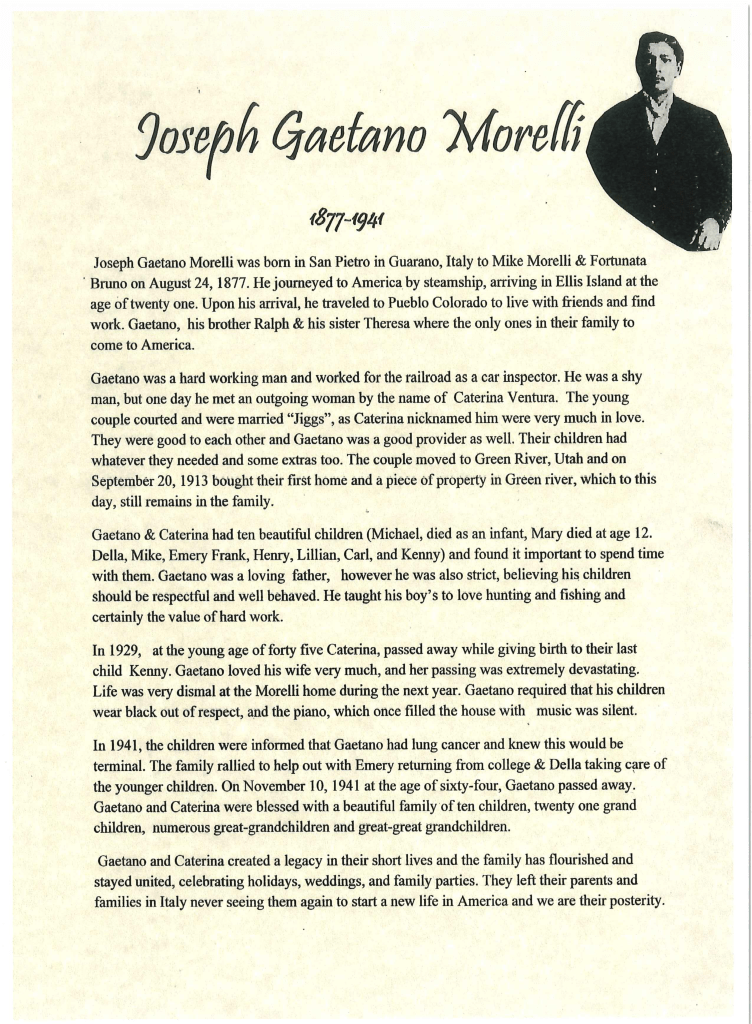 Joseph Gaetano Morelli
1877-1941
Joseph Gaetano Morelli was born in San Pietro in Guarano, Italy to Mike Morelli & Fortunata
Bruno on August 24, 1877. He journeyed to America by steamship, arriving in Ellis Island at the
age of twenty one. Upon his arrival, he traveled to Pueblo Colorado to live with friends and find
work. Gaetano, his brother Ralph & his sister Theresa where the only ones in their family to
come to America.
Gaetano was a hard working man and worked for the railroad as a car inspector. He was a shy
man, but one day he met an outgoing woman by the name of Caterina Ventura. The young
couple courted and were married “Jiggs”, as Caterina nicknamed him were very much in love.
They were good to each other and Gaetano was a good provider as well. Their children had
whatever they needed and some extras too. The couple moved to Green River, Utah and on
September 20, 1913 bought their first home and a piece of property in Green river, which to this
day, still remains in the family.
Gaetano & Caterina had ten beautiful children (Michael, died as an infant, Mary died at age 12.
Della, Mike, Emery Frank, Henry, Lillian, Carl, and Kenny) and found it important to spend time
with them. Gaetano was a loving father, however he was also strict, believing his children
should be respectful and well behaved. He taught his boy's to love hunting and fishing and
certainly the value of hard work.
In 1929, at the young age of forty five Caterina, passed away while giving birth to their last
child Kenny. Gaetano loved his wife very much, and her passing was extremely devastating.
Life was very dismal at the Morelli home during the next year. Gaetano required that his children
wear black out of respect, and the piano, which once filled the house with music was silent.
In 1941, the children were informed that Gaetano had lung cancer and knew this would be
terminal. The family rallied to help out with Emery returning from college & Della taking care of
the younger children. On November 10, 1941 at the age of sixty-four, Gaetano passed away.
Gaetano and Caterina were blessed with a beautiful family of ten children, twenty one grand
children, numerous great-grandchildren and great-great grandchildren.
Gaetano and Caterina created a legacy in their short lives and the family has flourished and
stayed united, celebrating holidays, weddings, and family parties. They left their parents and
families in Italy never seeing them again to start a new life in America and we are their posterity.